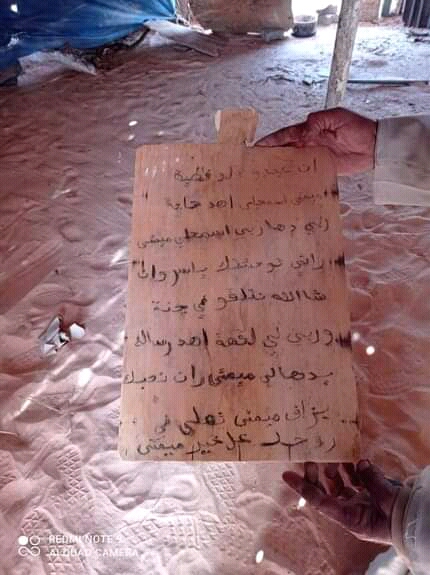 ميمتي اسمحلي اهد حاجة
ربي دها ربي اسمحلي ميمتي
راني توحشتك ياسر وان
شاالله نتلاقو في جنة
وربي لي لقهة اهد رساله
يدها لي ميمتي ران نحبك
بزاف ميمتي تهلي في
روحك عل خير ميمتي
REDMI NOTE
AI QUAD CAMERA